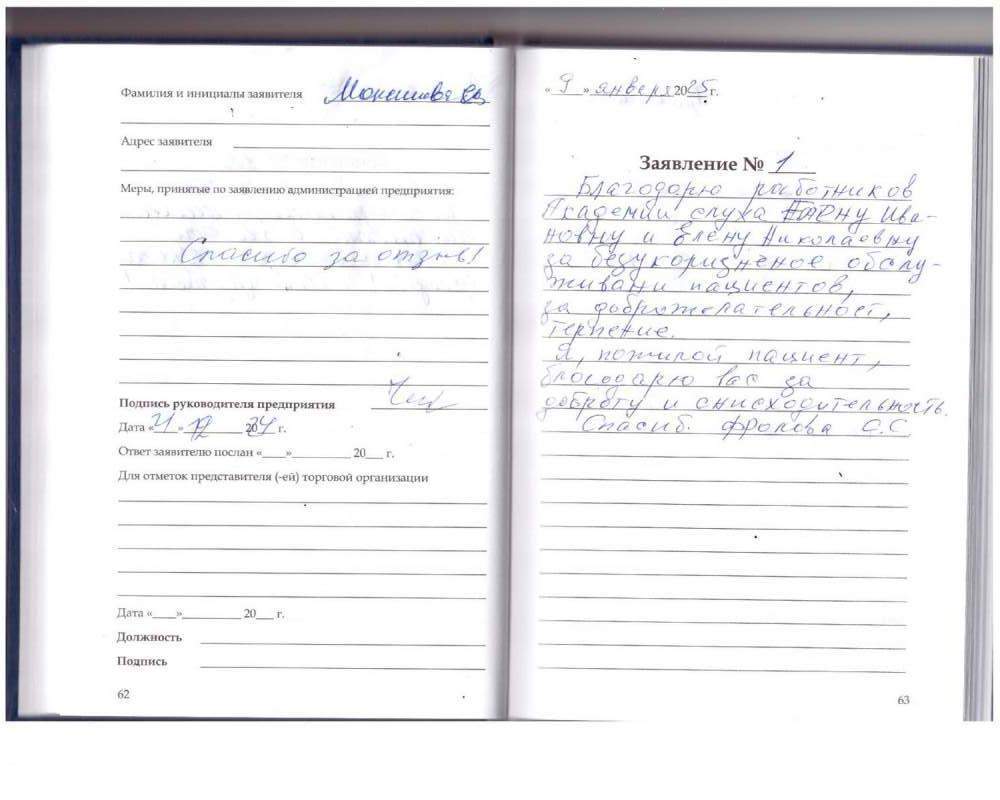 Фамилия и инициалы заявителя
Адрес заявителя
Меры, принятые по заявлению администрацией предприятия:
Спасибо за отзыв!
Подпись руководителя предприятия
Дата « » 12 2024 г.
Ответ заявителю послан «___»__________ 20___ г.
Для отметок представителя (-ей) торговой организации
Дата «____»__________ 20___ г.
Должность
Подпись
62
« 9 » января 2025 г.
Заявление № 1
Благодарю работников
Академии слуха Ива-
новну и Елену Николаевну
за безукоризненое обслу-
живани пациентов,
за доброжелательност,
терпение.
Я, пожилой пациент,
благодарю вас за
доброту и снисходительность.
Спасиб. Фролова С.С
63